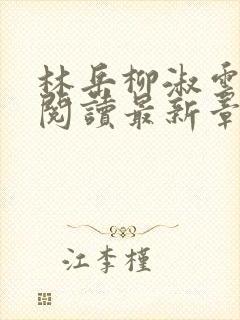 林岳柳淑雲
閱讀最新章
江李槿